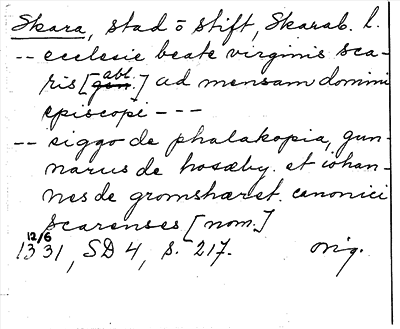 Skara, stad o stift, Skarab. l.
-- ecclesie beate virginis sca-
ris [abl.] ad mensam domini
episcopi ---
-- siggo de phalakopia, gun-
narus de hosæby. et iohan-
nes de gromshæret. canonici
scarenses [nom.]
12/6
1331, SD 4, s. 217. orig.